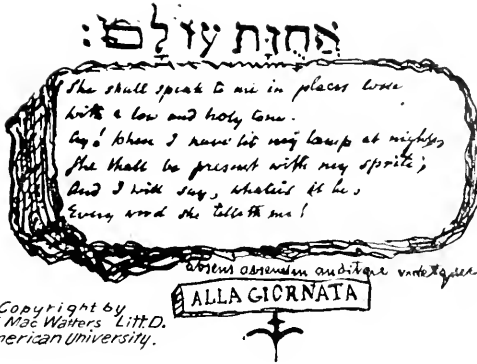 אֲחֻזַּת עוֹלָם:
She shall speak to me in places lone
With a low and holy tone.
Ay! when I have lit my lamp at night,
She shall be present with my sprite;
And I will say, whate'er it be,
Every word she telleth me!
absens absentem auditque videtque
ALLA GIORNATA
Copyright by
Mac Watters Litt.D.
merican University.